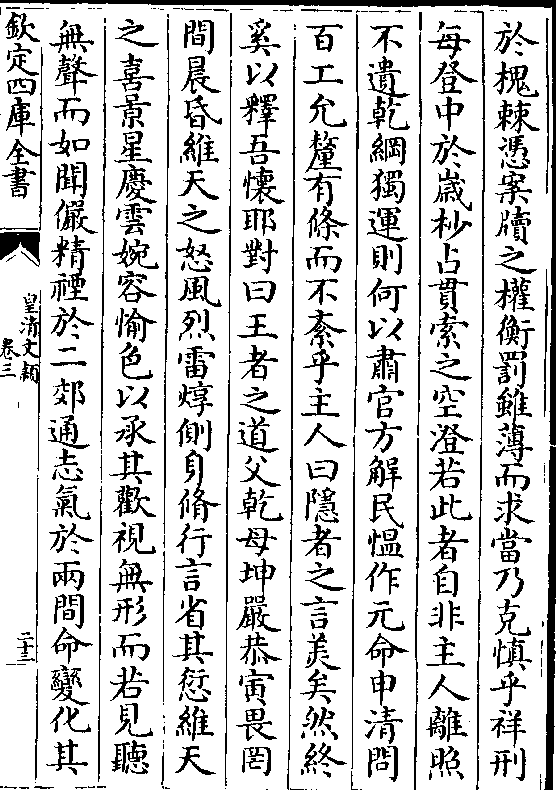 於槐棘憑案牘之權衡罰雖薄而求當乃克慎乎祥刑
每登中於嵗杪占貫索之空澄若此者自非主人離照
不遺乾綱獨運則何以肅官方解民慍作元命申清問
百工允釐有條而不紊乎主人曰隱者之言美矣然終
奚以釋吾懷耶對曰王者之道父乾母坤嚴恭寅畏罔
間晨昏維天之怒風烈雷焞側身脩行言省其愆維天
之喜景星慶雲婉容愉色以承其歡視無形而若見聽
無聲而如聞儼精禋於二郊通志氣於兩間命變化其
欽定四庫全書
皇清文穎
卷三
二十三